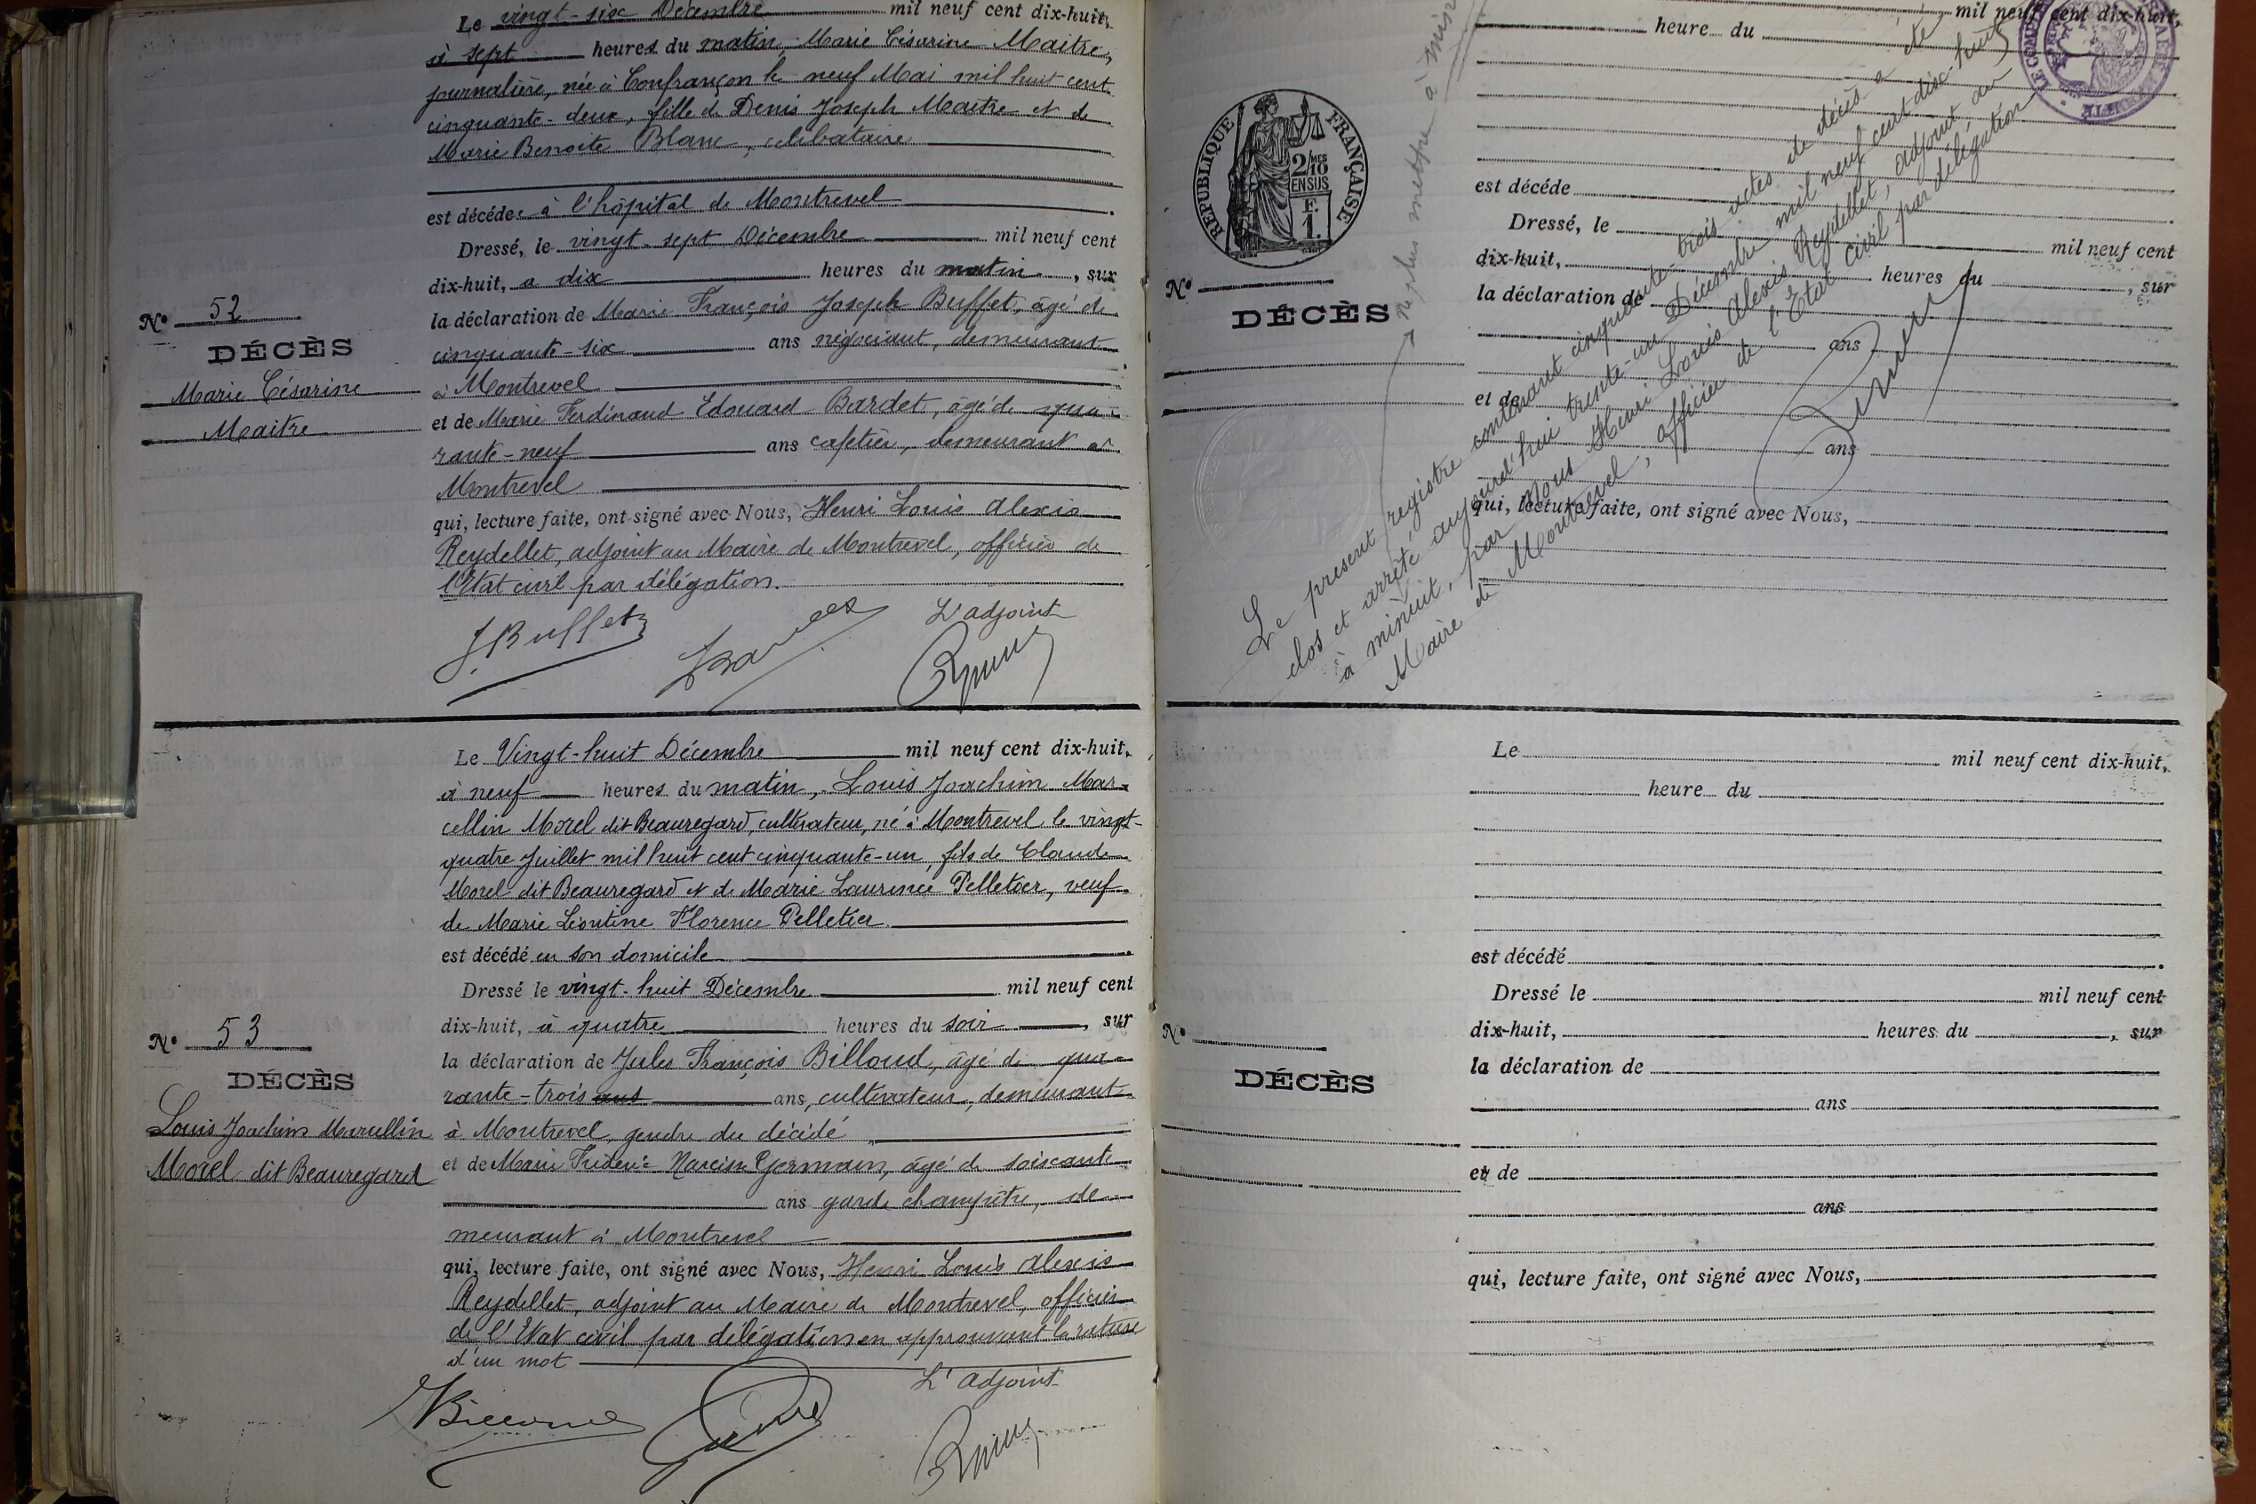 Le vingt-six Décembre mil neuf cent dix-huit,
à sept heures du matin, Marie Césarine Maitre,
journalière, née à Confrançon le neuf Mai mil huit cent
cinquante-deux, fille de Denis Joseph Maitre et de
Marie Benoite Blanc, célibataire
est décédée à l'hôpital de Montrevel
Dressé, le vingt-sept Décembre mil neuf cent
dix-huit, à dix heures du matin, sur
N° 52
DÉCÈS
Marie Césarine
Maitre
la déclaration de Marie François Joseph Buffet, âgé de
cinquante-six ans négociant, demeurant
à Montrevel
et de Marie Ferdinand Edouard Bardet, âgé de qua-
rante-neuf ans cafetier, demeurant à
Montrevel
qui, lecture faite, ont signé avec Nous, Henri Louis Alexis
Reydellet, adjoint au Maire de Montrevel, officier de
l'Etat civil par délégation.
L'adjoint
J. Buffet
Le Vingt-huit Décembre mil neuf cent dix-huit,
à neuf heures du matin, Louis Joachim Mar-
cellin Morel dit Beauregard, cultivateur, né à Montrevel le vingt-
quatre Juillet mil huit cent cinquante-un, fils de Claude
Morel dit Beauregard et de Marie Laurence Pelletier, veuf
de Marie Léontine Florence Pelletier
est décédé en son domicile
Dressé le vingt-huit Décembre mil neuf cent
dix-huit, à quatre heures du soir, sur
N° 53
DÉCÈS
Louis Joachim Marcellin
Morel dit Beauregard
la déclaration de Jules François Billoud, âgé de qua-
rante-trois ans ans, cultivateur, demeurant
à Montrevel, gendre du décédé
et de Marie Frédéric Narcisse Germain, âgé de soixante
ans garde champêtre, de-
meurant à Montrevel
qui, lecture faite, ont signé avec Nous, Henri Louis Alexis
Reydellet, adjoint au Maire de Montrevel, officier
de l'Etat civil par délégation en approuvant la rature
d'un mot
L'adjoint
mil neuf cent dix-huit,
heure du
REPUBLIQUE FRANÇAISE
2/10 MES
EN SUS
F.
1.
est décédé
Dressé, le mil neuf cent
dix-huit, heures du , sur
N°
DÉCÈS
la déclaration de
ans
et de
ans
qui, lecture faite, ont signé avec Nous,
Le présent registre contenant cinquante-trois actes de décès a été
clos et arrêté aujourd'hui trente-un Décembre mil neuf cent dix-huit
à minuit, par Nous Henri Louis Alexis Reydellet, adjoint au
Maire de Montrevel, officier de l'Etat civil par délégation
Le mil neuf cent dix-huit,
heure du
est décédé
Dressé le mil neuf cent
dix-huit, heures du , sur
N°
DÉCÈS
la déclaration de
ans
et de
ans
qui, lecture faite, ont signé avec Nous,